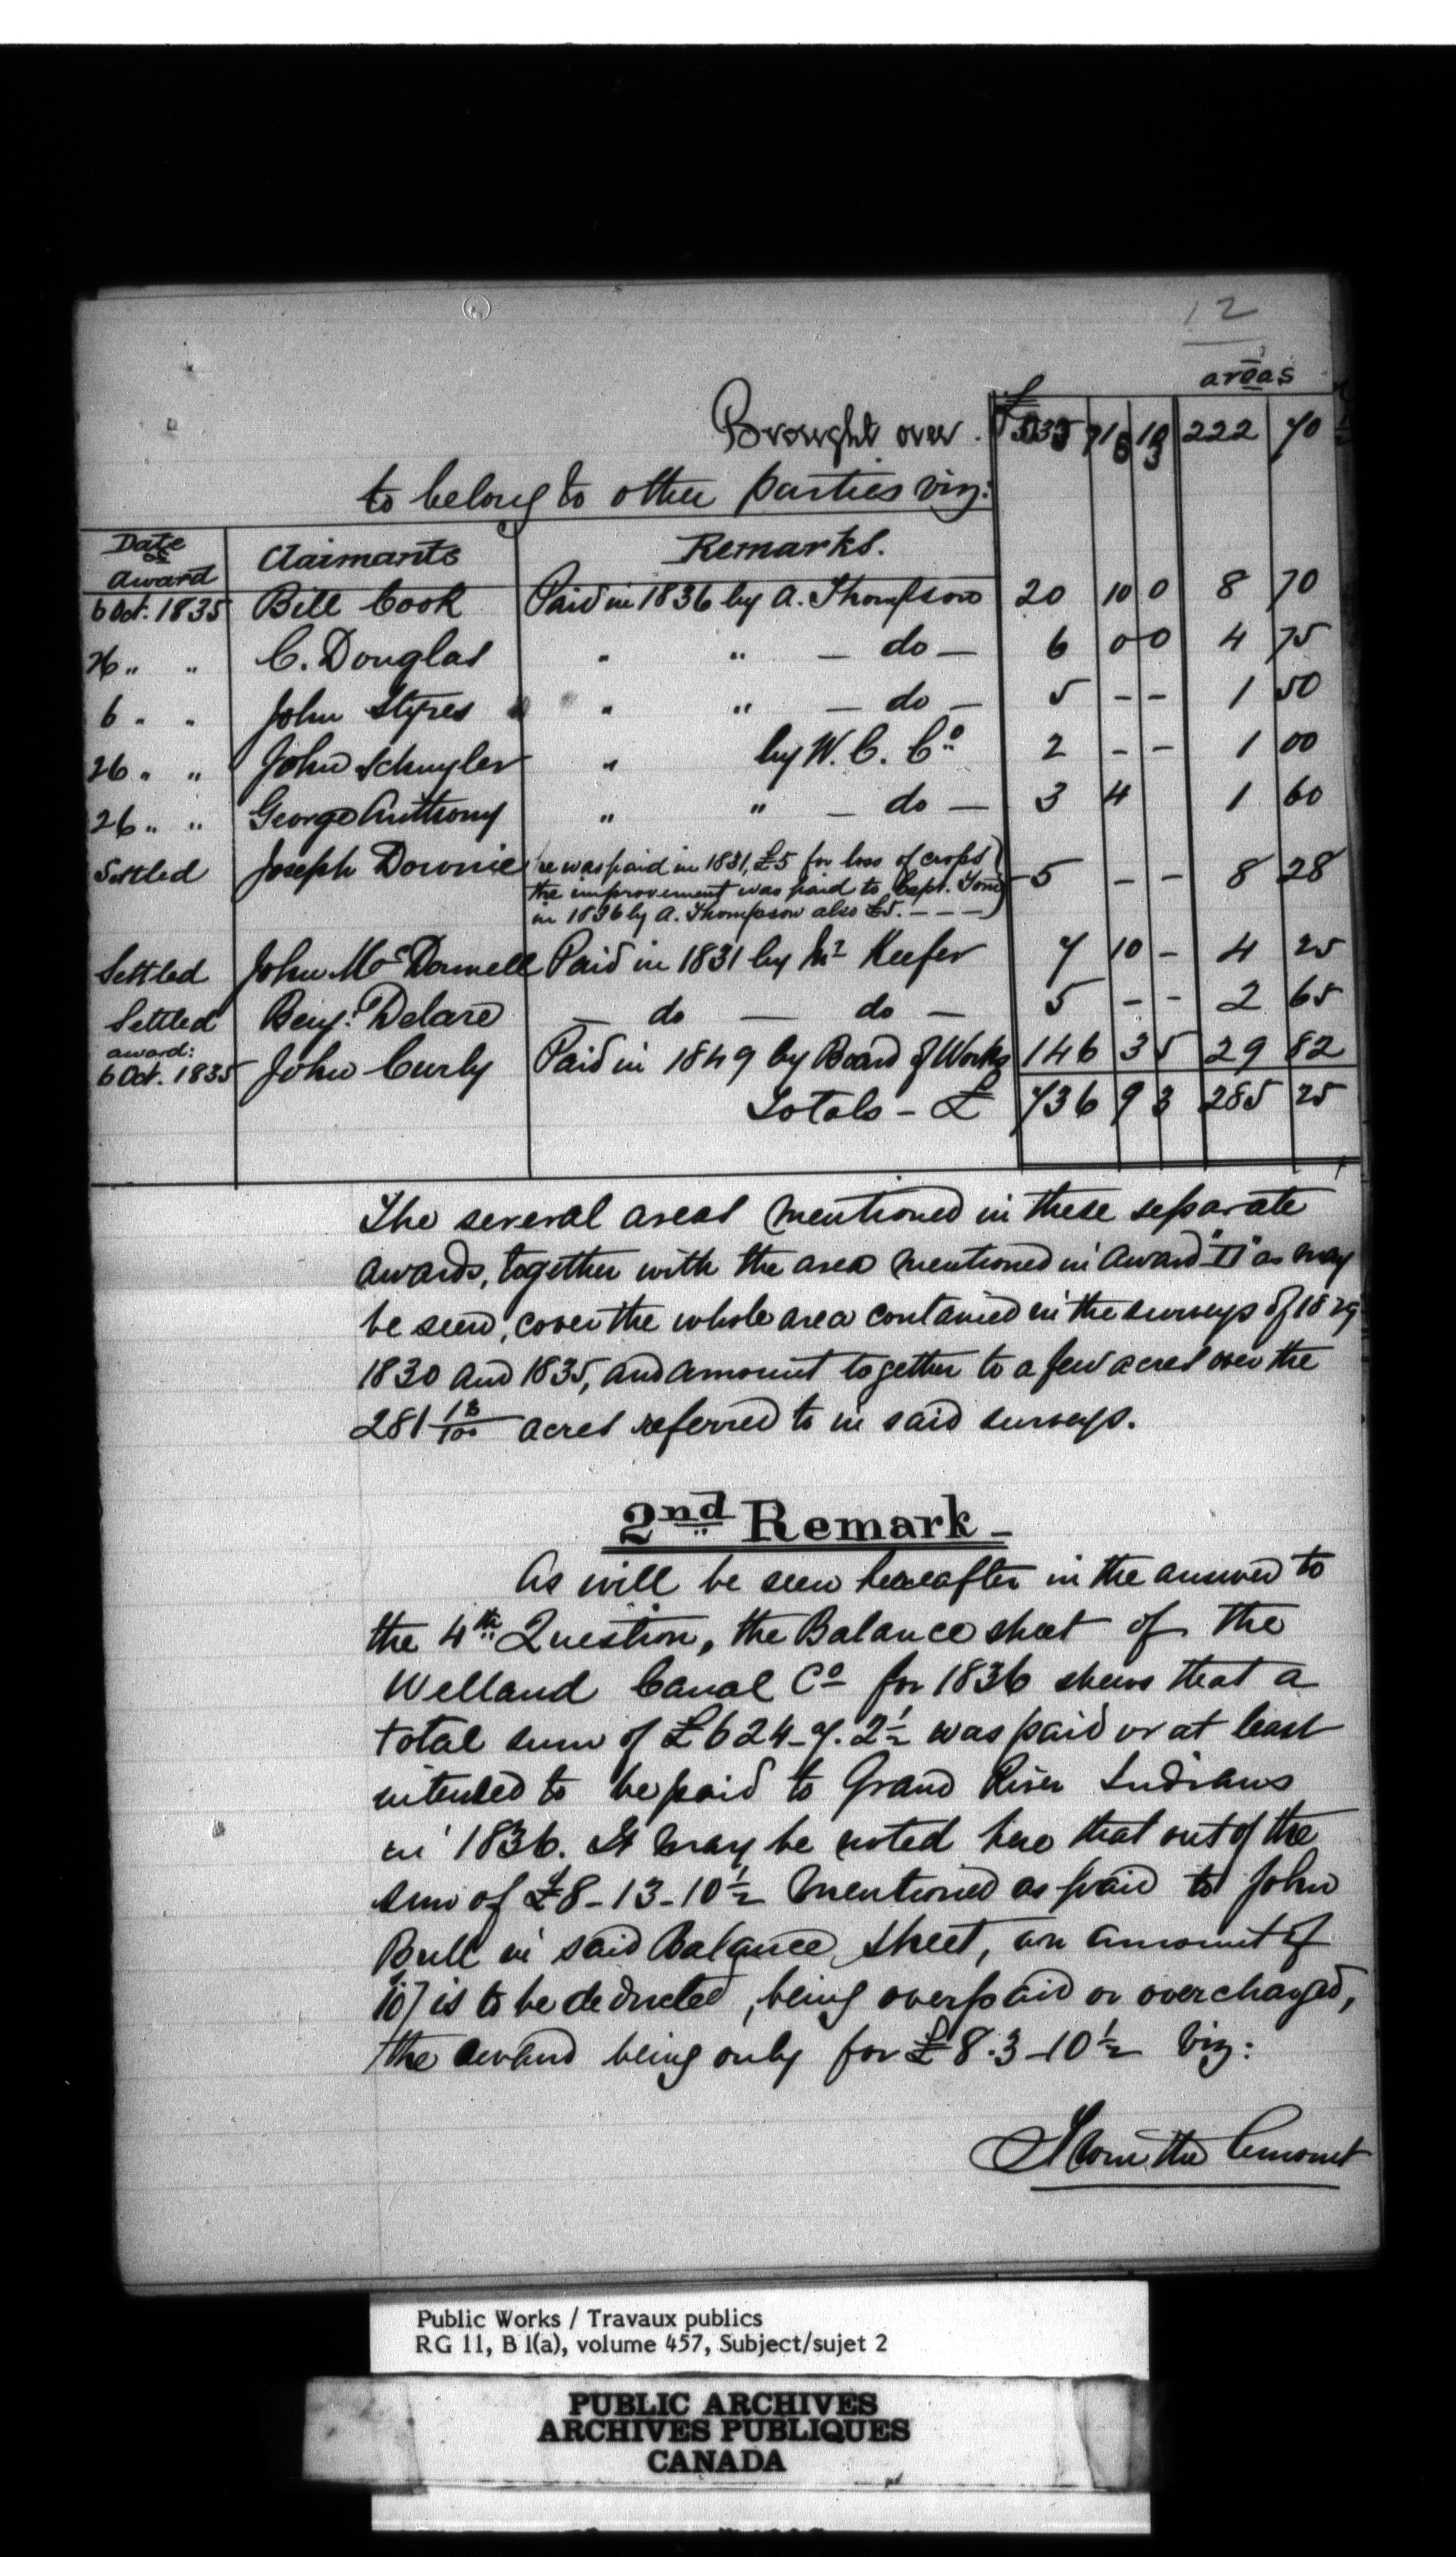 12
areas
Brought over . £ 222 70
to belong to other parties viz:
Date of Award Claimants Remarks.
6 Oct. 1835 Bill Cook Paid in 1836 by A. Thompson 20 10 0 8 70
26 " " C. Douglas " " — do — 6 0 0 4 75
6 " " John Styres " " — do — 5 - - 1 50
26 " " John Schuyler " by W. C. Co. 2 - - 1 00
26 " " George Anthony " " — do — 3 4 1 60
Settled Joseph Downie he was paid in 1831, £5 for loss of crops
the improvement was paid to Capt. Tom 5 - - 8 28
in 1836 by A. Thompson also £5. - - -
Settled John McDonnell Paid in 1831 by Mr Keefer 7 10 - 4 25
Settled Benj. Delare — do — do — 5 - - 2 65
award: 6 Oct. 1835 John Curly Paid in 1849 by Board of Works 146 3 5 29 82
Totals - £ 736 9 3 285 25
The several areas mentioned in these separate
awards, together with the area mentioned in award "D" as may
be seen, cover the whole area contained in the surveys of 1829
1830 and 1835, and amount together to a few acres over the
281 18/100 acres referred to in said surveys.
2nd Remark -
As will be seen hereafter in the answer to
the 4th Question, the Balance sheet of the
Welland Canal Co for 1836 shews that a
total sum of £624-7.2½ was paid or at least
intended to be paid to Grand River Indians
in 1836. It may be noted here that out of the
sum of £8-13-10½ mentioned as paid to John
Bull in said Balance sheet, an amount of
10/ is to be deducted, being overpaid or overcharged,
the award being only for £8.3-10½ viz:
the Amount
Public Works / Travaux publics
RG 11, B 1(a), volume 457, Subject/sujet 2
PUBLIC ARCHIVES
ARCHIVES PUBLIQUES
CANADA